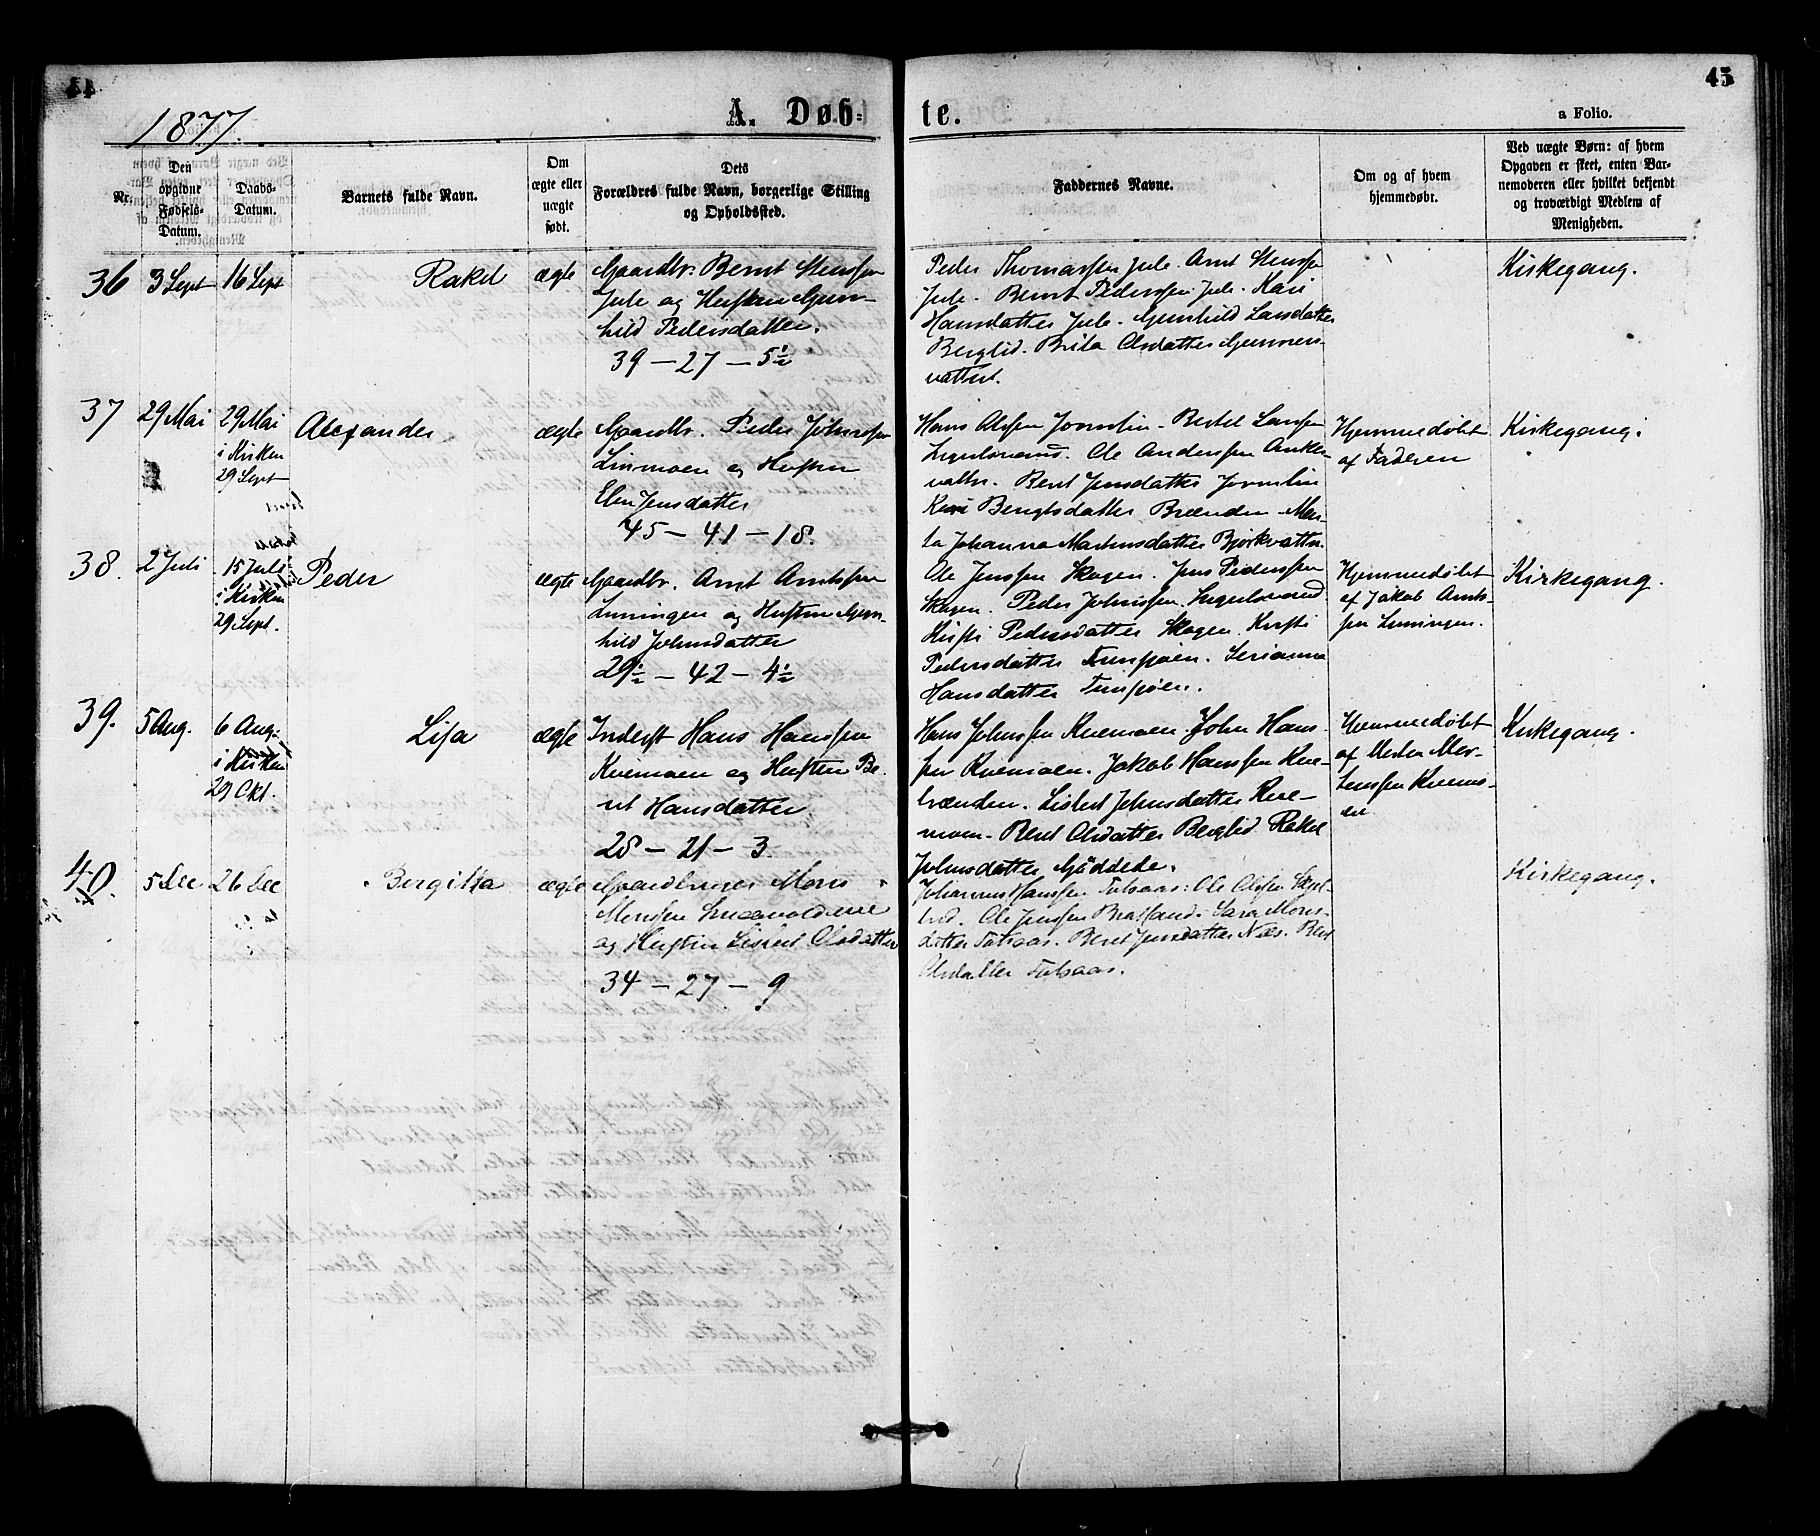 44
45
1877.
A. Døb-
te.
a Folio.
Nr.
Den
opgivne
Fødsels-
Datum.
Daabs-
Datum.
Barnets fulde Navn.
Om
ægte eller
uægte
født.
Dets
Forældres fulde Navn, borgerlige Stilling
og Opholdssted.
Faddernes Navne.
Om og af hvem
hjemmedøbt.
Ved uægte Børn: af hvem
Opgaven er skeet, enten Bar-
nemoderen eller hvilket bekjendt
og troværdigt Medlem af
Menigheden.
36
3 Sept
16 Sept
Rakel
ægte
Gaardbr. Bernt Stenssen
Jule og Hustru Gun-
hild Pedersdatter.
39 - 27 - 5½
Peder Thomassen Jule. Arnt Stenssen
Jule. Bernt Pederssen Jule. Kari
Hansdatter Jule. Gunhild Larsdatter
Berglid. Brita Olsdatter
vattnet.
Kirkegang.
37
29 Mai
29 Mai
i Kirken
29 Sept
Alexander
ægte
Gaardbr. Peder Johnssen
Linmoen og Hustru
Elen Jensdatter
45 - 41 - 18.
Hans Olssen Jormlien. Bertel Larssen
Ingulsvand. Ole Anderssen Anka-
vattn. Beret Jensdatter Jormlien
Kari Bengtsdatter Brænden. Mar-
ta Johanna Martinsdatter Bjørkvattn.
Hjemmedøbt
af Faderen
Kirkegang.
38.
2 Juli
15 Juli
i Kirken
29 Sept.
Peder
ægte
Gaardbr. Arnt Arntssen
Linningen og Hustru Gun-
hild Johnsdatter
29½ - 42 - 4½
Ole Jenssen Skogen. Jens Pederssen
Skogen. Peder Johnssen Ingulsvand
Kirsti Pedersdatter Skogen. Kirsti
Pedersdatter Tunsjøen. Serianna
Hansdatter Tunsjøen.
Hjemmedøbt
af Jakob Arnts-
sen Linningen.
Kirkegang.
39.
5 Aug.
6 Aug.
i Kirken
29 Okt.
Lisa
ægte
Inderst Hans Hanssen
Kvemoen og Hustru Be-
ret Hansdatter
28 - 21 - 3.
Hans Johnssen Kvemoen. John Hans-
sen Kvemoen. Jakob Hanssen Kve-
brænden. Lisbet Johnsdatter Kve-
moen. Beret Olsdatter Berglid. Rakel
Johnsdatter Gäddede.
Hjemmedøbt
af Morten Mor-
tenssen Kvemo-
en
Kirkegang.
40.
5 Dec
26 Dec
Bergitta
ægte
Gaardbruger Mons
Monssen
og Hustru Lisbet Olsdatter
34 - 27 - 9
Johannes Hanssen Totsaas. Ole Olssen
Ole Jenssen Bratland. Sara Mons-
datter Totsaas. Beret Jensdatter Næs. Beret
Olsdatter Totsaas.
Kirkegang.